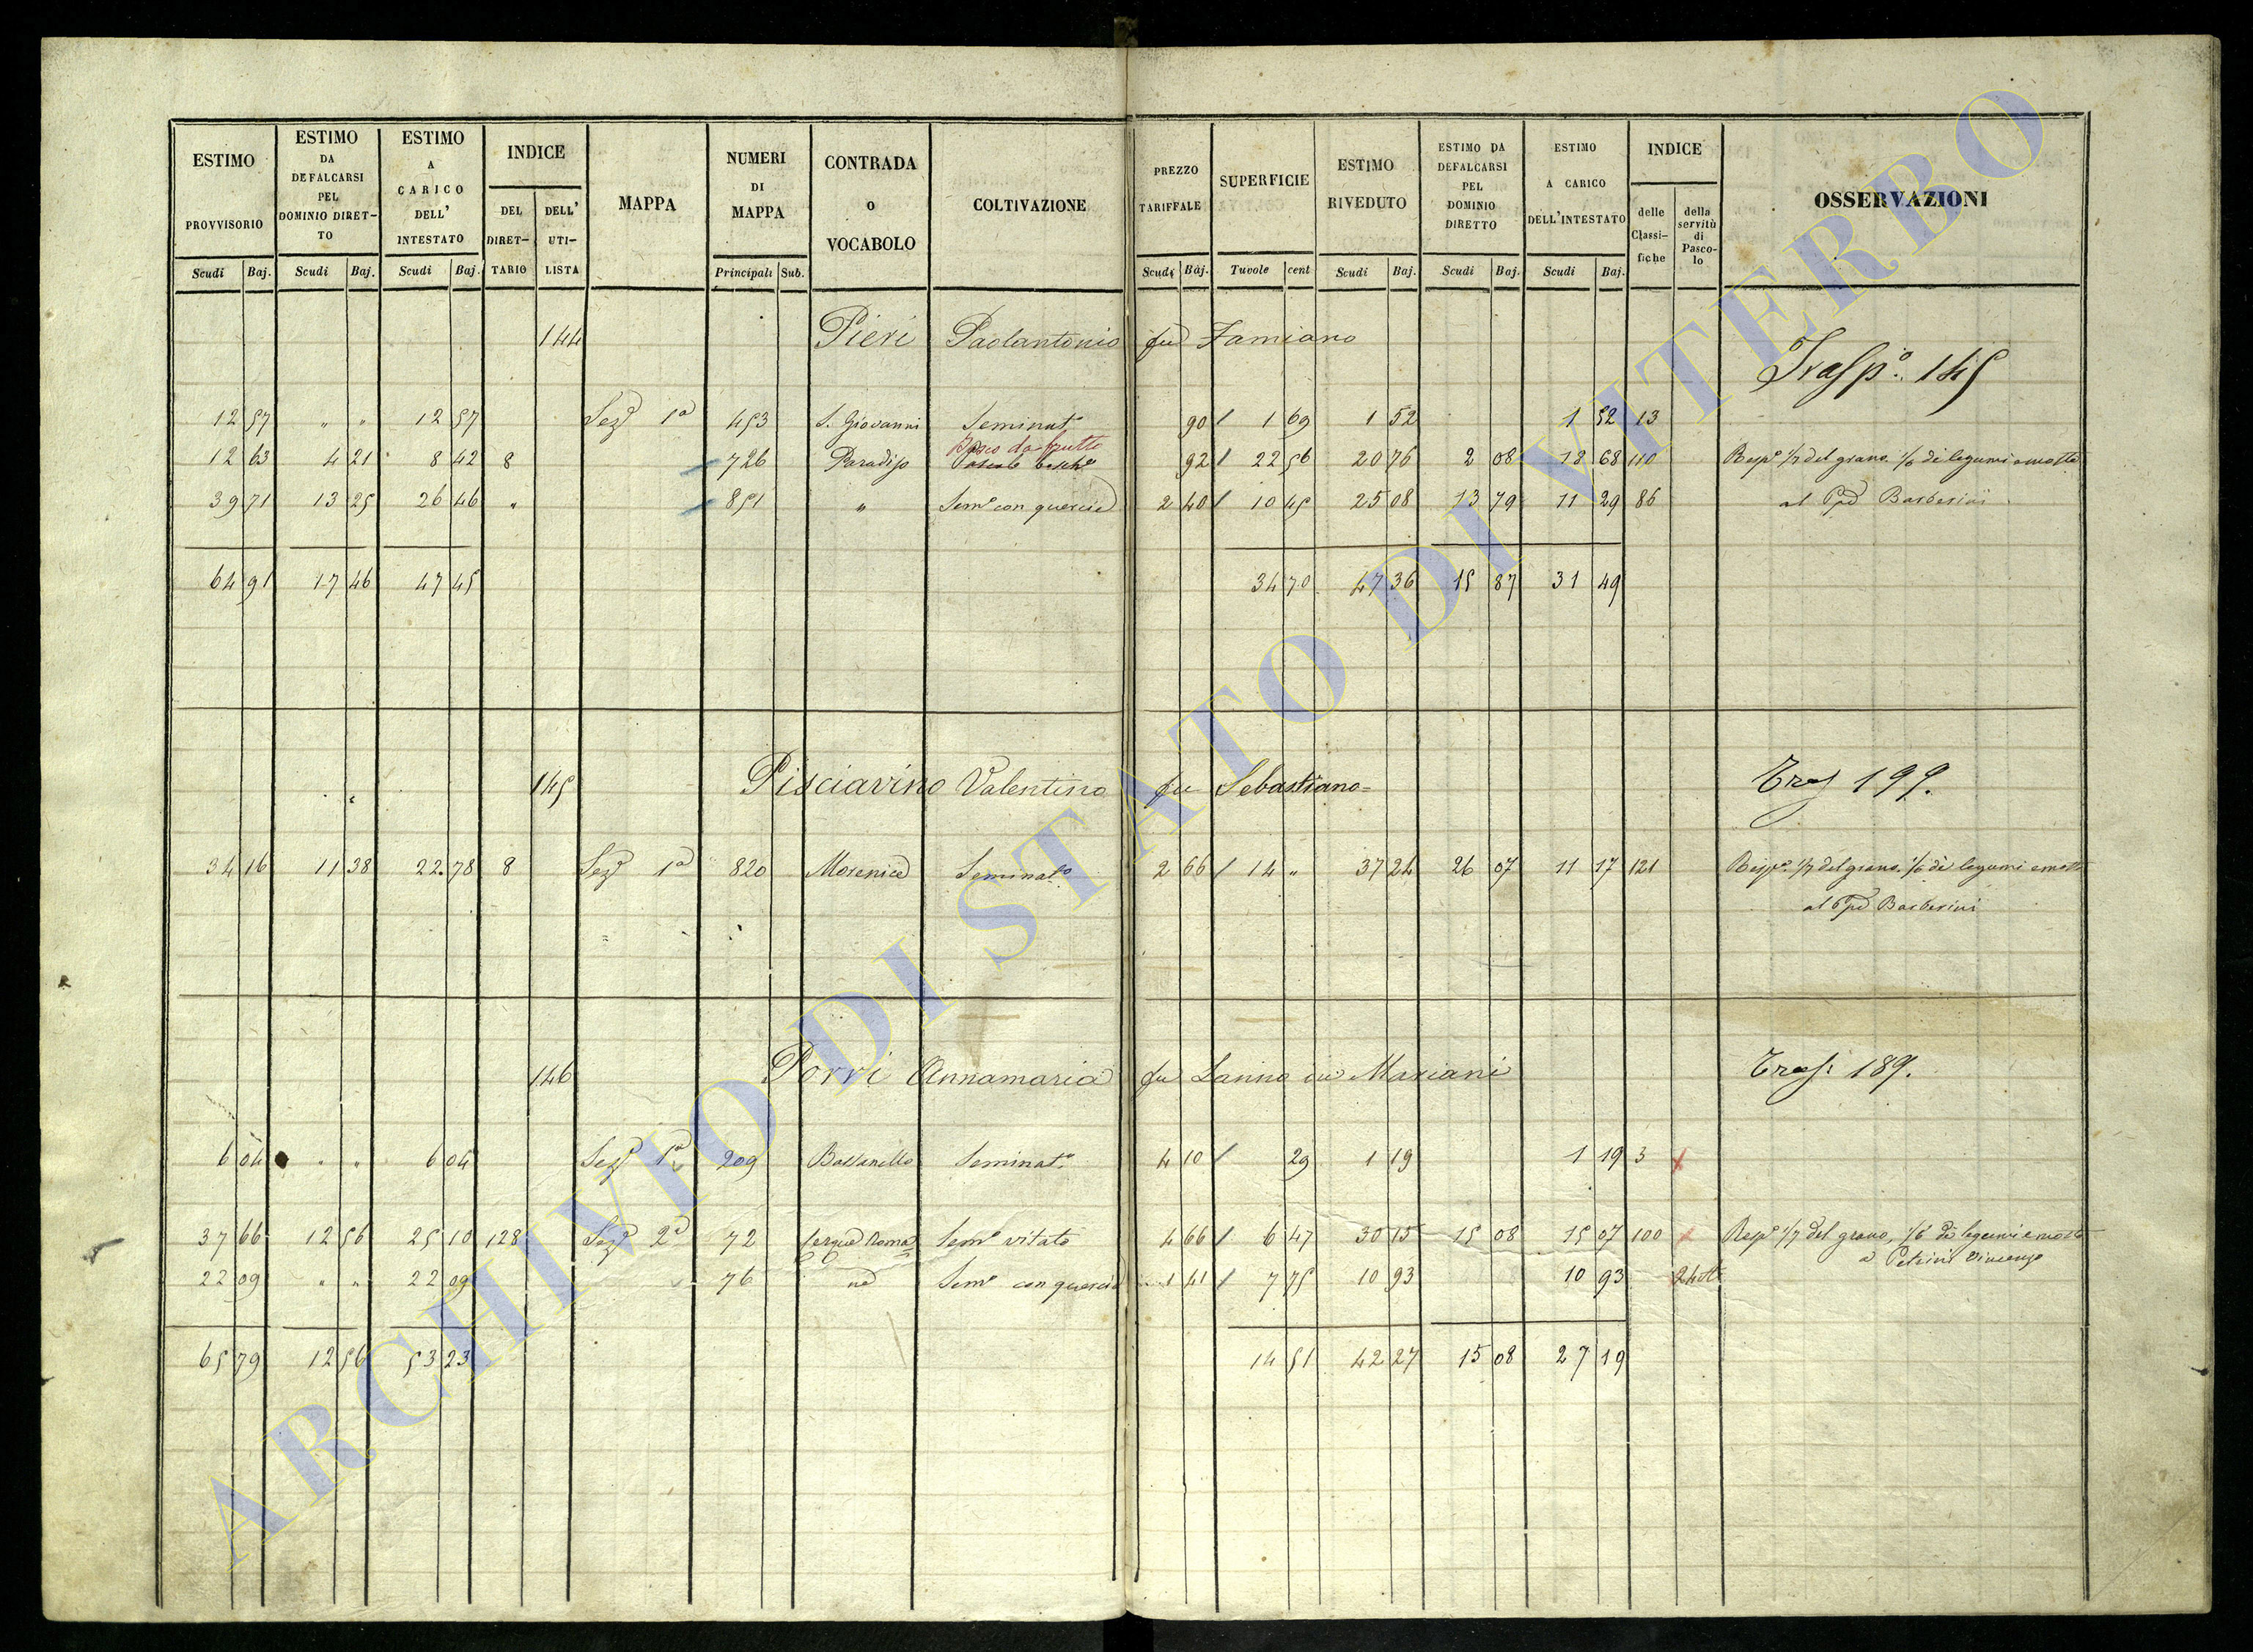 ESTIMO PROVVISORIO Scudi Baj. | ESTIMO DA DEFALCARSI PEL DOMINIO DIRETTO Scudi Baj. | ESTIMO A CARICO DELL' INTESTATO Scudi Baj. | INDICE DEL DIRETTARIO DELL' UTILISTA | MAPPA | NUMERI DI MAPPA Principali Sub. | CONTRADA O VOCABOLO | COLTIVAZIONE | PREZZO TARIFFALE Scudi Baj. | SUPERFICIE Tavole cent | ESTIMO RIVEDUTO Scudi Baj. | ESTIMO DA DEFALCARSI PEL DOMINIO DIRETTO Scudi Baj. | ESTIMO A CARICO DELL'INTESTATO Scudi Baj. | INDICE delle Classifiche della servitù di Pascolo | OSSERVAZIONI
144 Pieri Paolantonio fu Famiano
Trasp.o 145
12 57 " " 12 57 Sez.e 1a 453 S. Giovanni Seminat.o 90 / 1 69 1 52 1 52 13
Bosco da frutto
12 63 4 21 8 42 8 726 Paradiso Pascolo bosch.o 92 / 22 56 20 76 2 08 18 68 110 Resp.e 1/7 del grano 1/6 di legumi e mosto
39 71 13 25 26 46 " 851 " Sem.o con quercie 2 40 / 10 45 25 08 13 79 11 29 86 al Barberini
64 91 17 46 47 45 34 70 47 36 15 87 31 49
145 Pisciavino Valentino fu Sebastiano= Tras 199.
34 16 11 38 22 78 8 Sez.e 1a 820 Morenice Seminat.o 2 66 / 14 " 37 24 26 07 11 17 121 Resp.e 1/7 del grano 1/6 di legumi e mosto
al Barberini
146 Porri Annamaria fu Sanno in Mariani Tras: 189.
6 04 " " 6 04 Sez.e 1a 209 Bassanello Seminat.o 4 10 / 29 1 19 1 19 3
37 66 12 56 25 10 128 Sez.e 2a 72 Roma Sem.o vitato 4 66 / 6 47 30 15 15 08 15 07 100 Resp.e 1/7 del grano, 1/6 di legumi e mosto
a Petrini Vincenzo
22 09 " " 22 09 76 Sem.o con quercie 1 41 / 7 75 10 93 10 93
65 79 12 56 53 23 14 51 42 27 15 08 27 19
ARCHIVIO DI STATO DI VITERBO